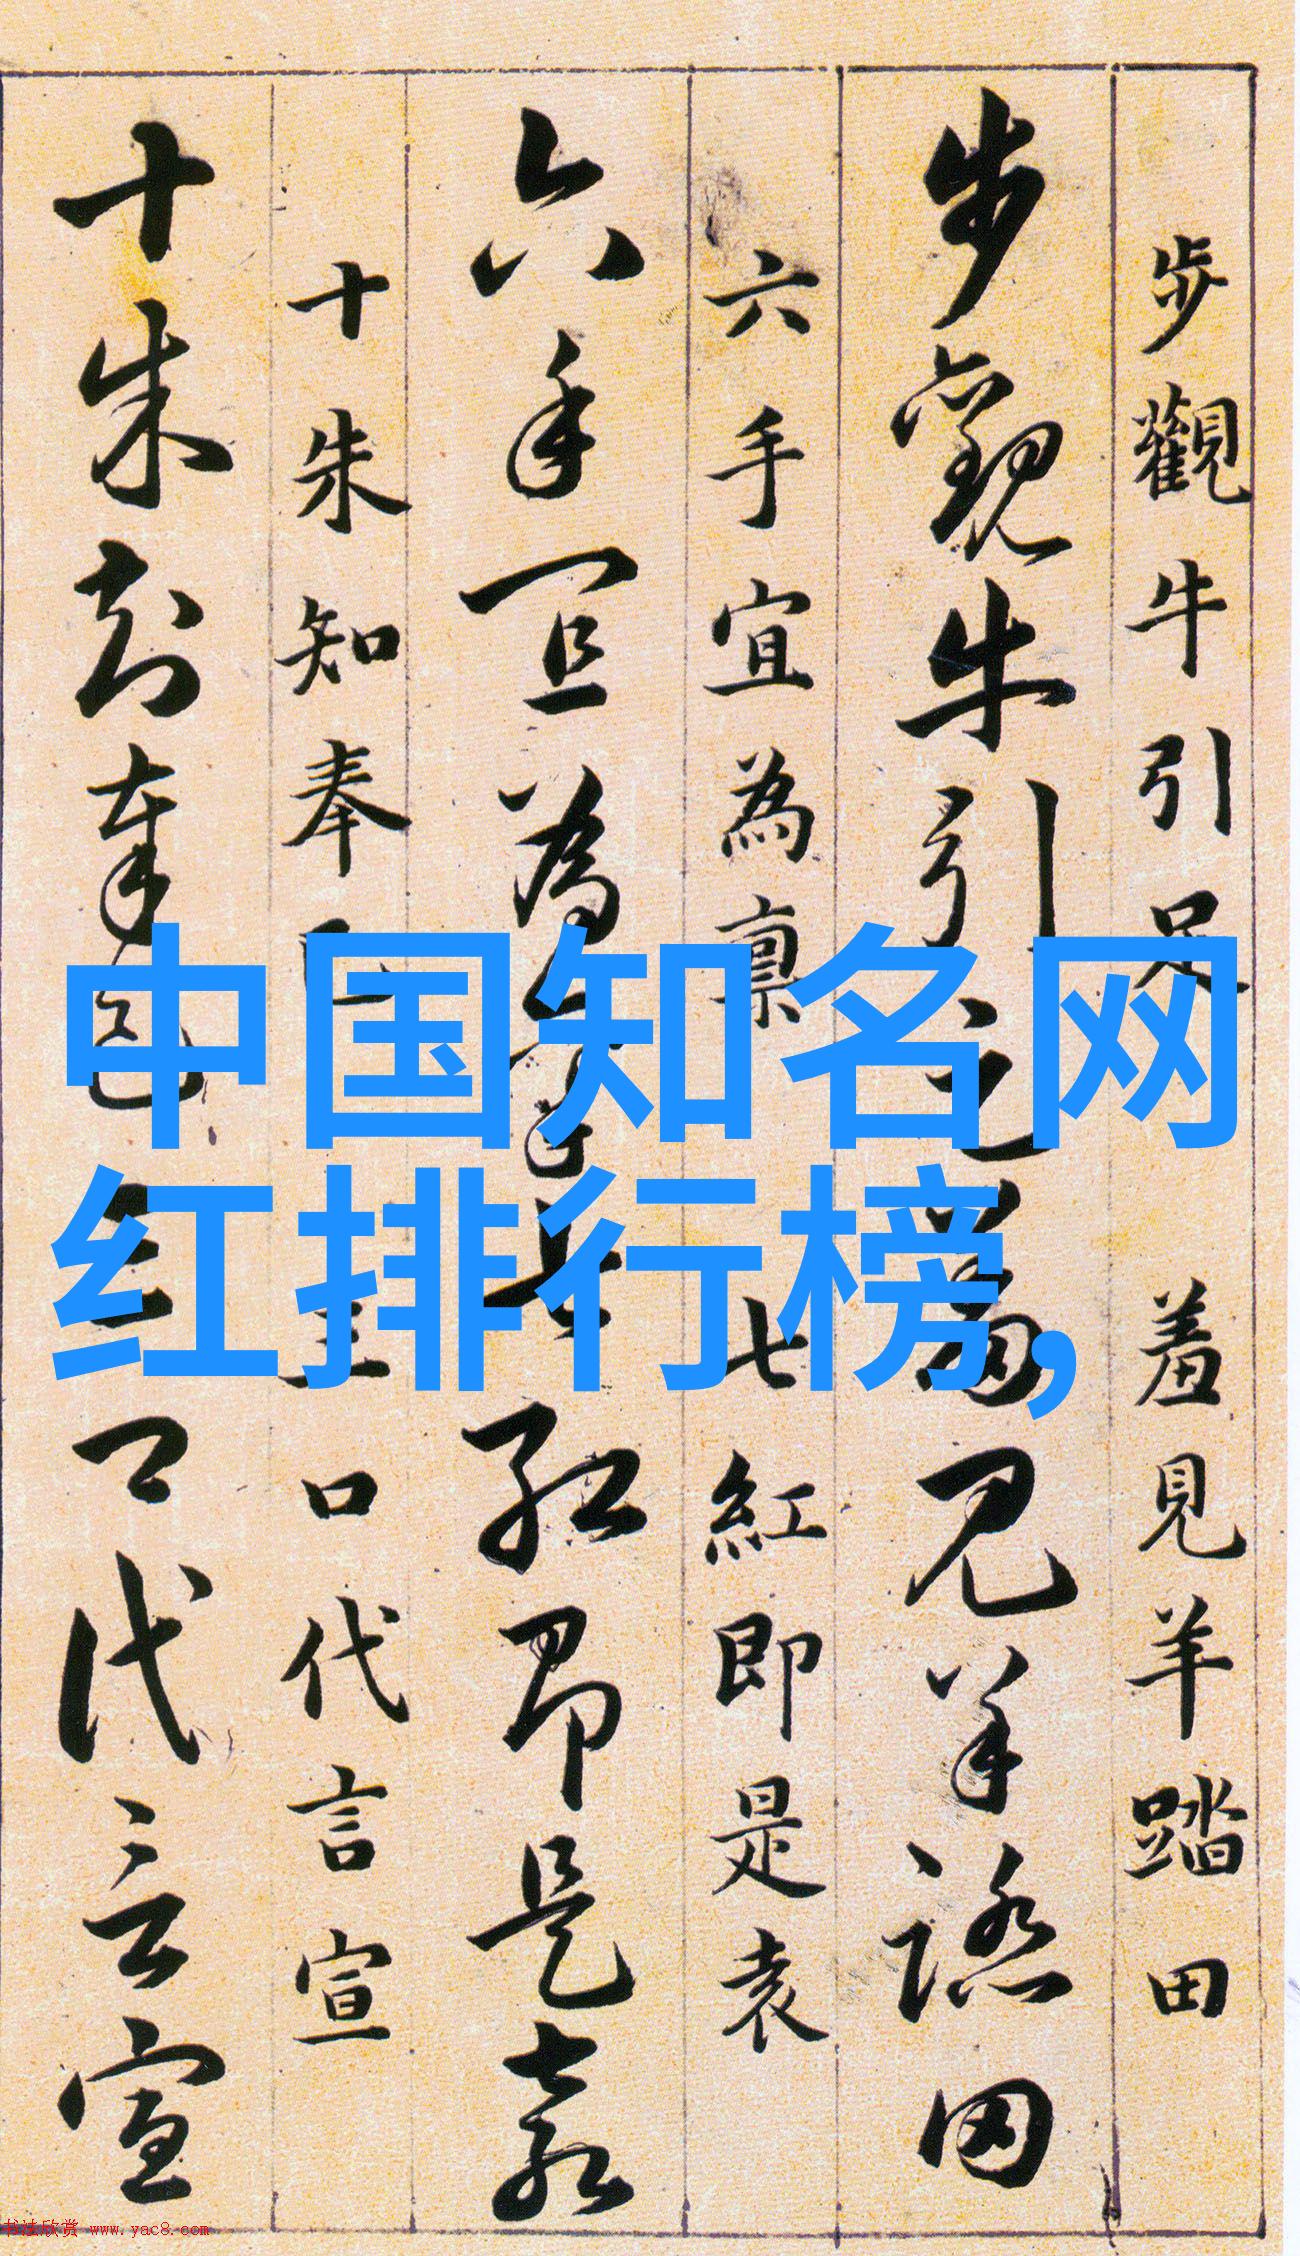 步觀牛引足 羞見羊踏田
步觀牛引足羞見羊踏田
六手宜為稟 七紅即是袁
六手宜為稟七紅即是袁
十朱知奉 王口代言宣
十朱知奉 王口代言宣
中国知名网
红排行榜,
书法欣赏 www.yac8.com